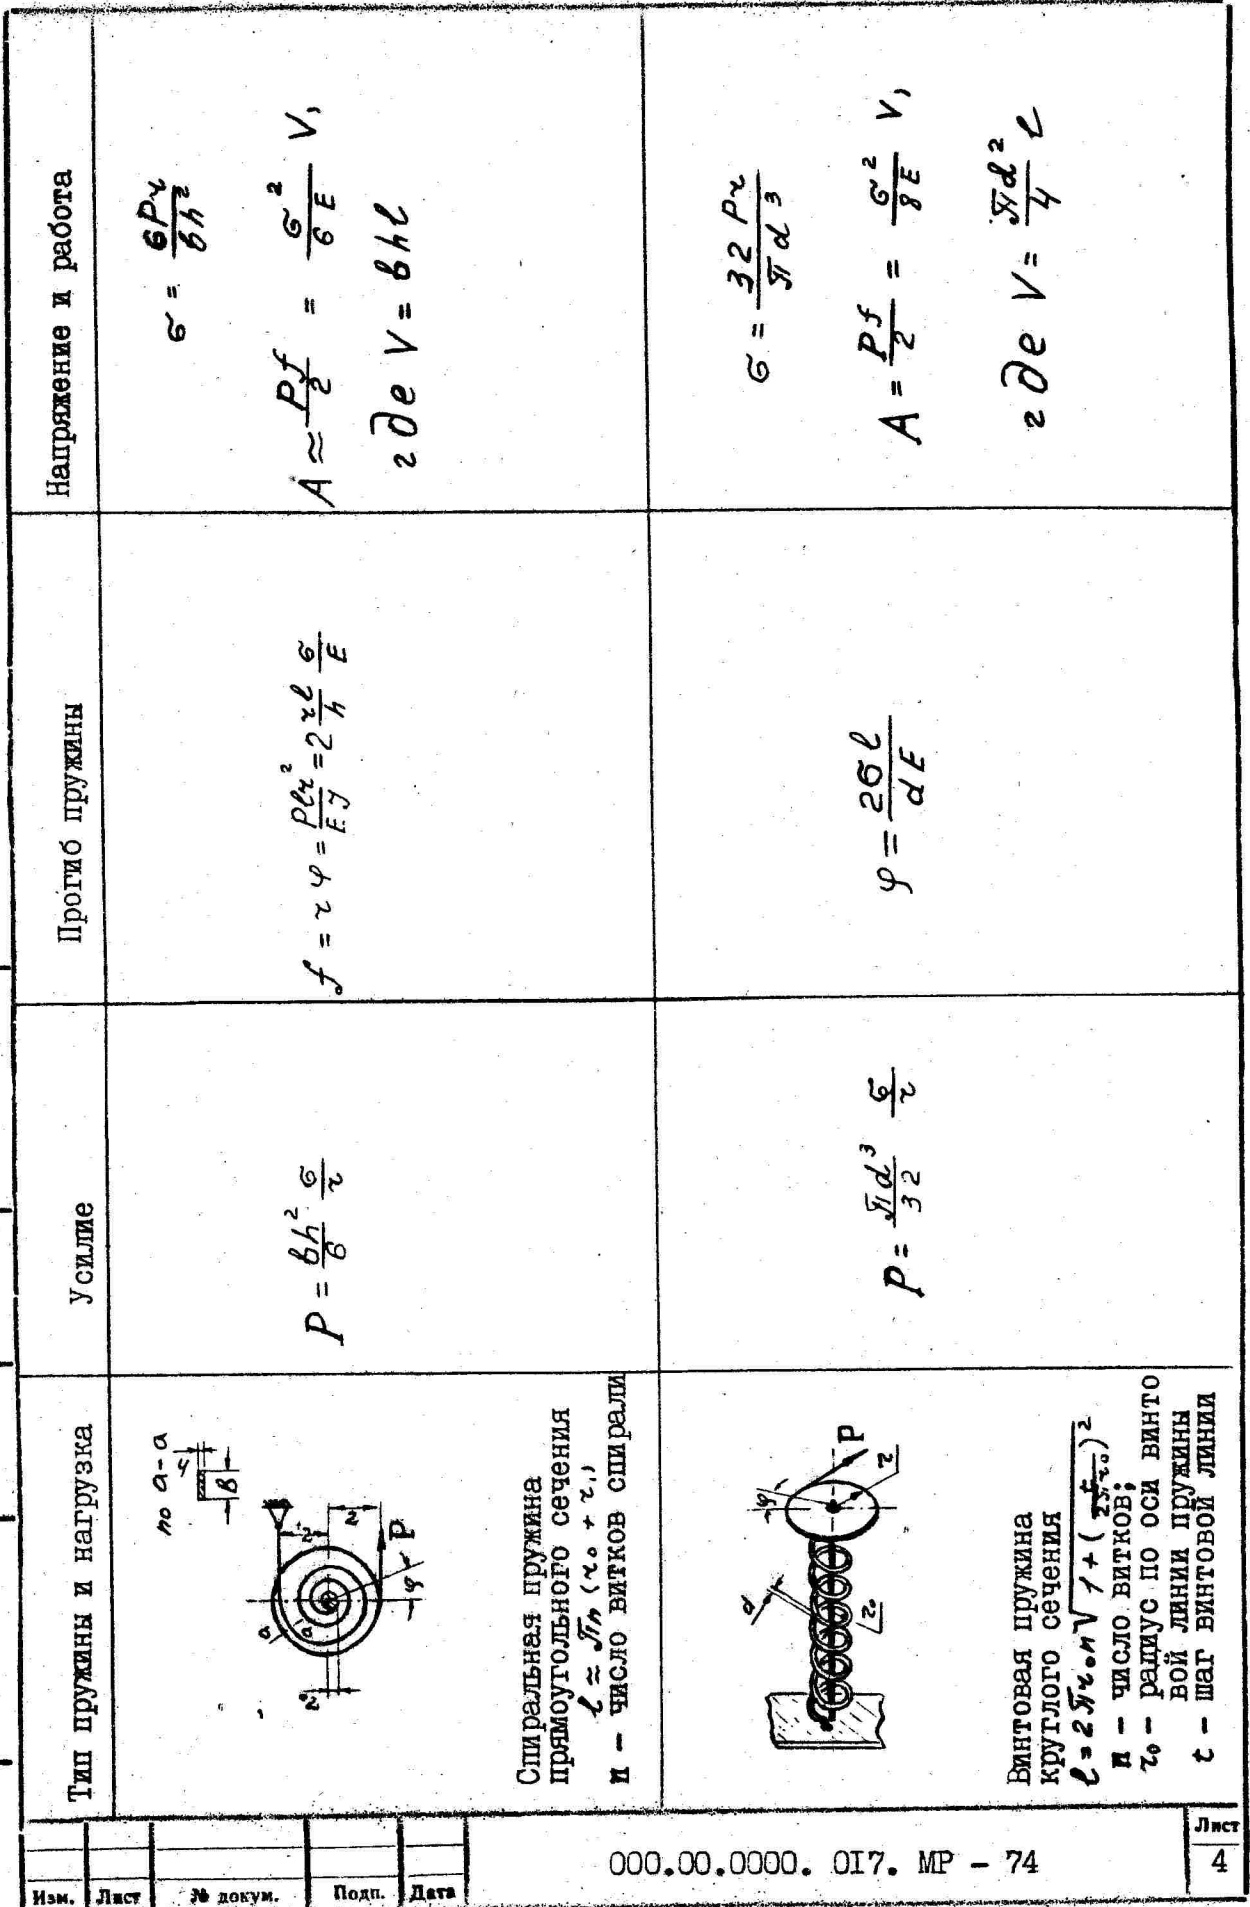 Тип пружины и нагрузка
Усилие
Прогиб пружины
Напряжение и работа
по а-а
В
а
а
P
φ
Спиральная пружина
прямоугольного сечения
ℓ ≈ πn (r₀ + r₁)
n – число витков спирали
P = bh²/6 σ/r
f = rφ = Pℓr²/EJ = 2 rℓ/h σ/E
σ = 6Pr/bh²
A ≈ Pf/2 = σ²/6E V,
где V = bhℓ
d
r₀
φ
P
r
Винтовая пружина
круглого сечения
ℓ = 2πr₀n√1 + (t/2πr₀)²
n – число витков;
r₀ – радиус по оси винто
вой линии пружины
t – шаг винтовой линии
P = πd³/32 σ/r
φ = 2σℓ/dE
σ = 32 Pr/πd³
A = Pf/2 = σ²/8E V,
где V = πd²/4 ℓ
Изм. Лист № докум. Подп. Дата
000.00.0000. 0I7. МР – 74
Лист
4